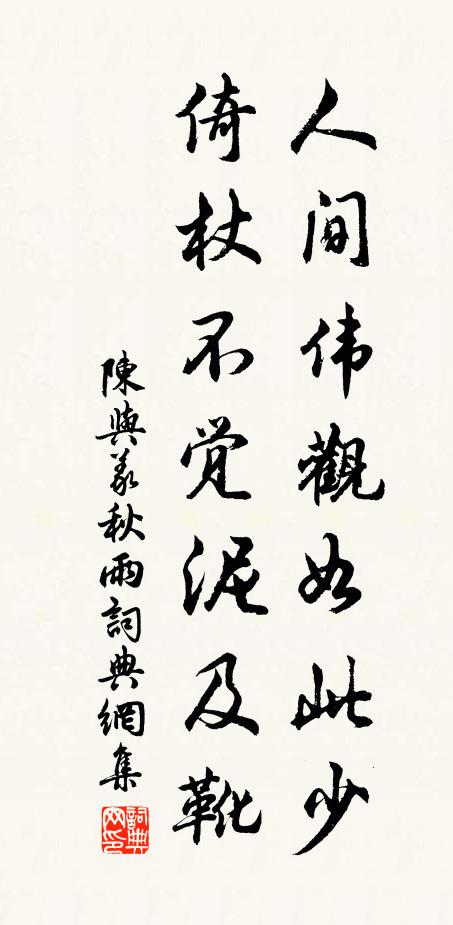 人间伟觀如此少
倚杖不觉泥及靴
陳與義秋雨詞典網集
詞典网印